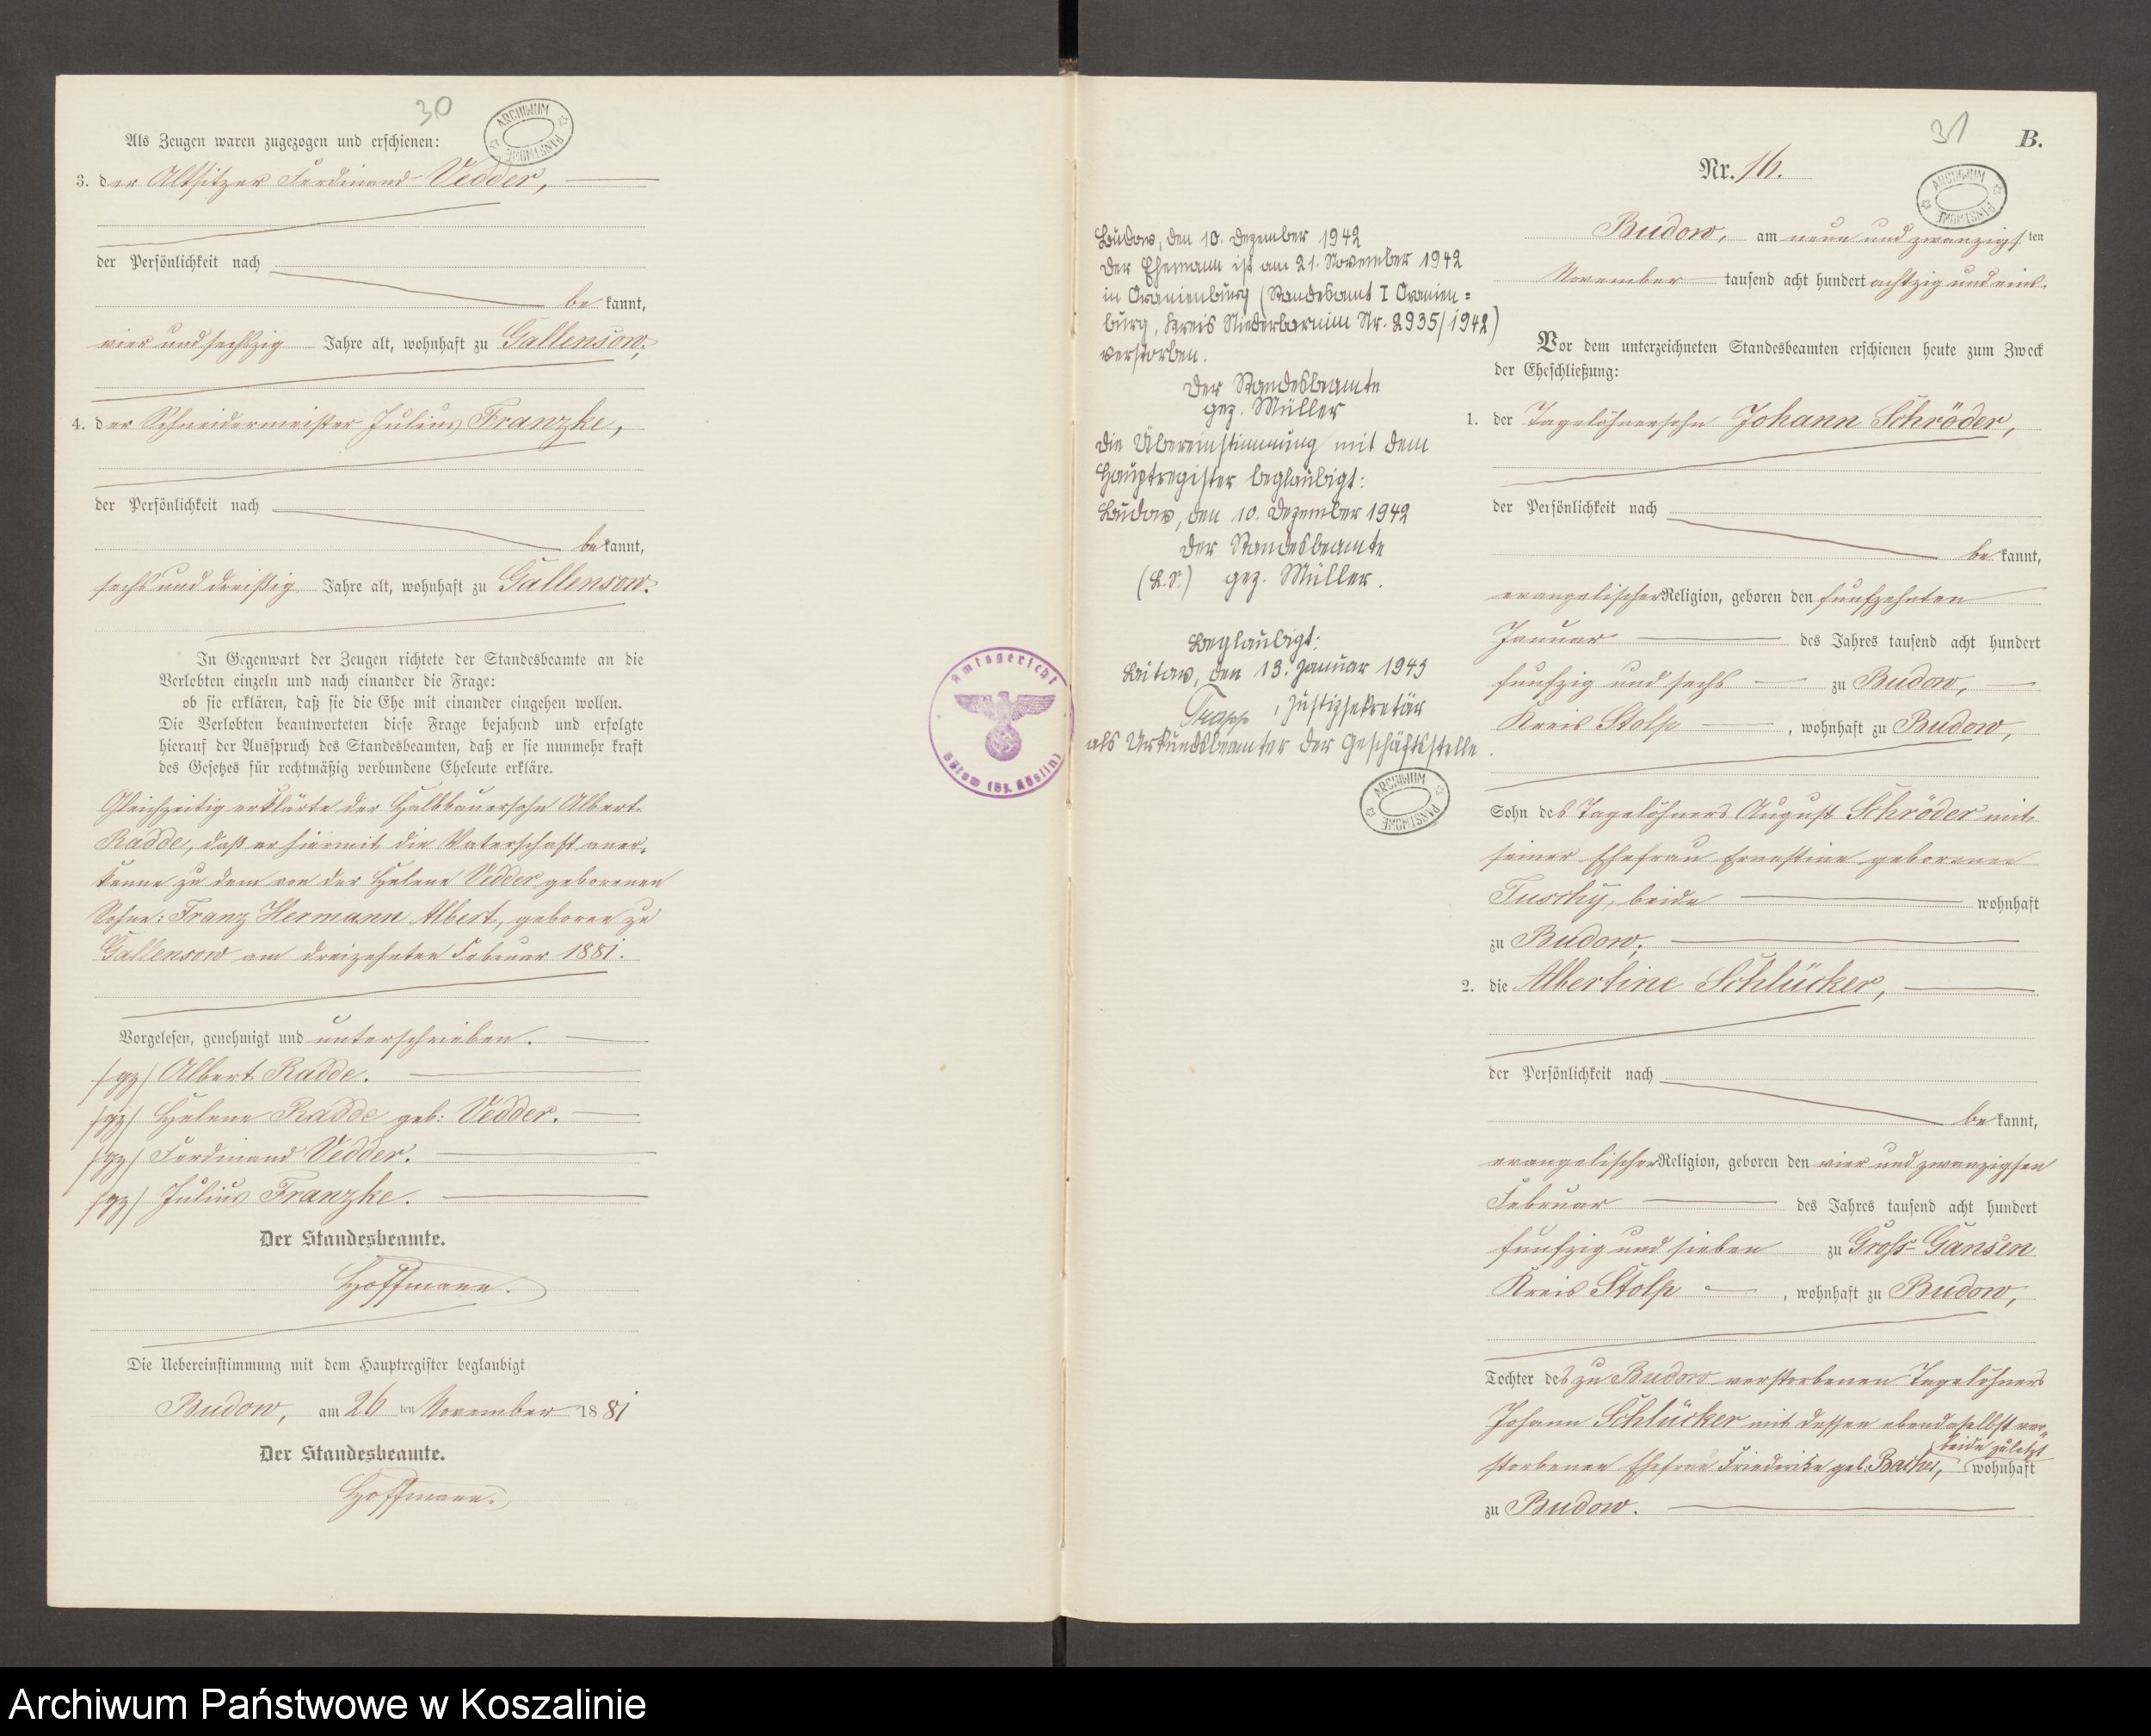 30
ARCHIWUM PAŃSTWOWE
Als Zeugen waren zugezogen und erschienen:
3. der Altsitzer Ferdinand Vedder,
der Persönlichkeit nach
be kannt,
vier und sechszig Jahre alt, wohnhaft zu Gallensow.
4. der Schneidermeister Julius Franzke,
der Persönlichkeit nach
be kannt,
sechs und dreißig Jahre alt, wohnhaft zu Gallensow.
In Gegenwart der Zeugen richtete der Standesbeamte an die
Verlobten einzeln und nach einander die Frage:
ob sie erklären, daß sie die Ehe mit einander eingehen wollen.
Die Verlobten beantworteten diese Frage bejahend und erfolgte
hierauf der Ausspruch des Standesbeamten, daß er sie nunmehr kraft
des Gesetzes für rechtmäßig verbundene Eheleute erkläre.
Gleichzeitig erklärte der Halbbauersohn Albert
Radde, daß er hiermit die Vaterschaft aner-
kenne zu dem von der Helene Vedder geborenen
Sohne: Franz Hermann Albert, geboren zu
Gallensow am dreizehnten Februar 1881.
Vorgelesen, genehmigt und unterschrieben.
/gz/ Albert Radde.
/gz/ Helene Radde geb: Vedder.
/gz/ Ferdinand Vedder.
/gz/ Julius Franzke.
Der Standesbeamte.
Hoffmann.
Die Uebereinstimmung mit dem Hauptregister beglaubigt
Budow, am 26 ten November 1881
Der Standesbeamte.
Hoffmann.
Amtsgericht
Bütow (Bz. Köslin)
Budow, den 10. Dezember 1942
Der Ehemann ist am 21. November 1942
in Oranienburg (Standesamt I Oranien=
burg, Kreis Niederbarnim Nr. 2935/1942)
verstorben.
Der Standesbeamte
gez. Müller
Die Übereinstimmung mit dem
Hauptregister beglaubigt:
Budow, den 10. Dezember 1942
Der Standesbeamte
(L.S.) gez. Müller.
Beglaubigt:
Bütow, den 13. Januar 1943
, Justizsekretär
als Urkundsbeamter der Geschäftsstelle.
ARCHIWUM PAŃSTWOWE
31
B.
Nr. 16.
ARCHIWUM PAŃSTWOWE
Budow, am neun und zwanzigs ten
November tausend acht hundert achtzig und eins.
Vor dem unterzeichneten Standesbeamten erschienen heute zum Zweck
der Eheschließung:
1. der Tagelöhnersohn Johann Schröder,
der Persönlichkeit nach
be kannt,
evangelischer Religion, geboren den funfzehnten
Januar des Jahres tausend acht hundert
funfzig und sechs zu Budow,
Kreis Stolp, wohnhaft zu Budow,
Sohn des Tagelöhners August Schröder mit
seiner Ehefrau Ernestine geborenen
Tuschy, beide wohnhaft
zu Budow.
2. die Albertine Schlücker,
der Persönlichkeit nach
be kannt,
evangelischer Religion, geboren den vier und zwanzigsten
Februar des Jahres tausend acht hundert
funfzig und sieben zu Gross-Gansen
Kreis Stolp, wohnhaft zu Budow,
Tochter des zu Budow verstorbenen Tagelöhners
Johann Schlücker mit dessen ebendaselbst ver-
beide zuletzt
storbenen Ehefrau Friederike geb. wohnhaft
zu Budow.
Archiwum Państwowe w Koszalinie